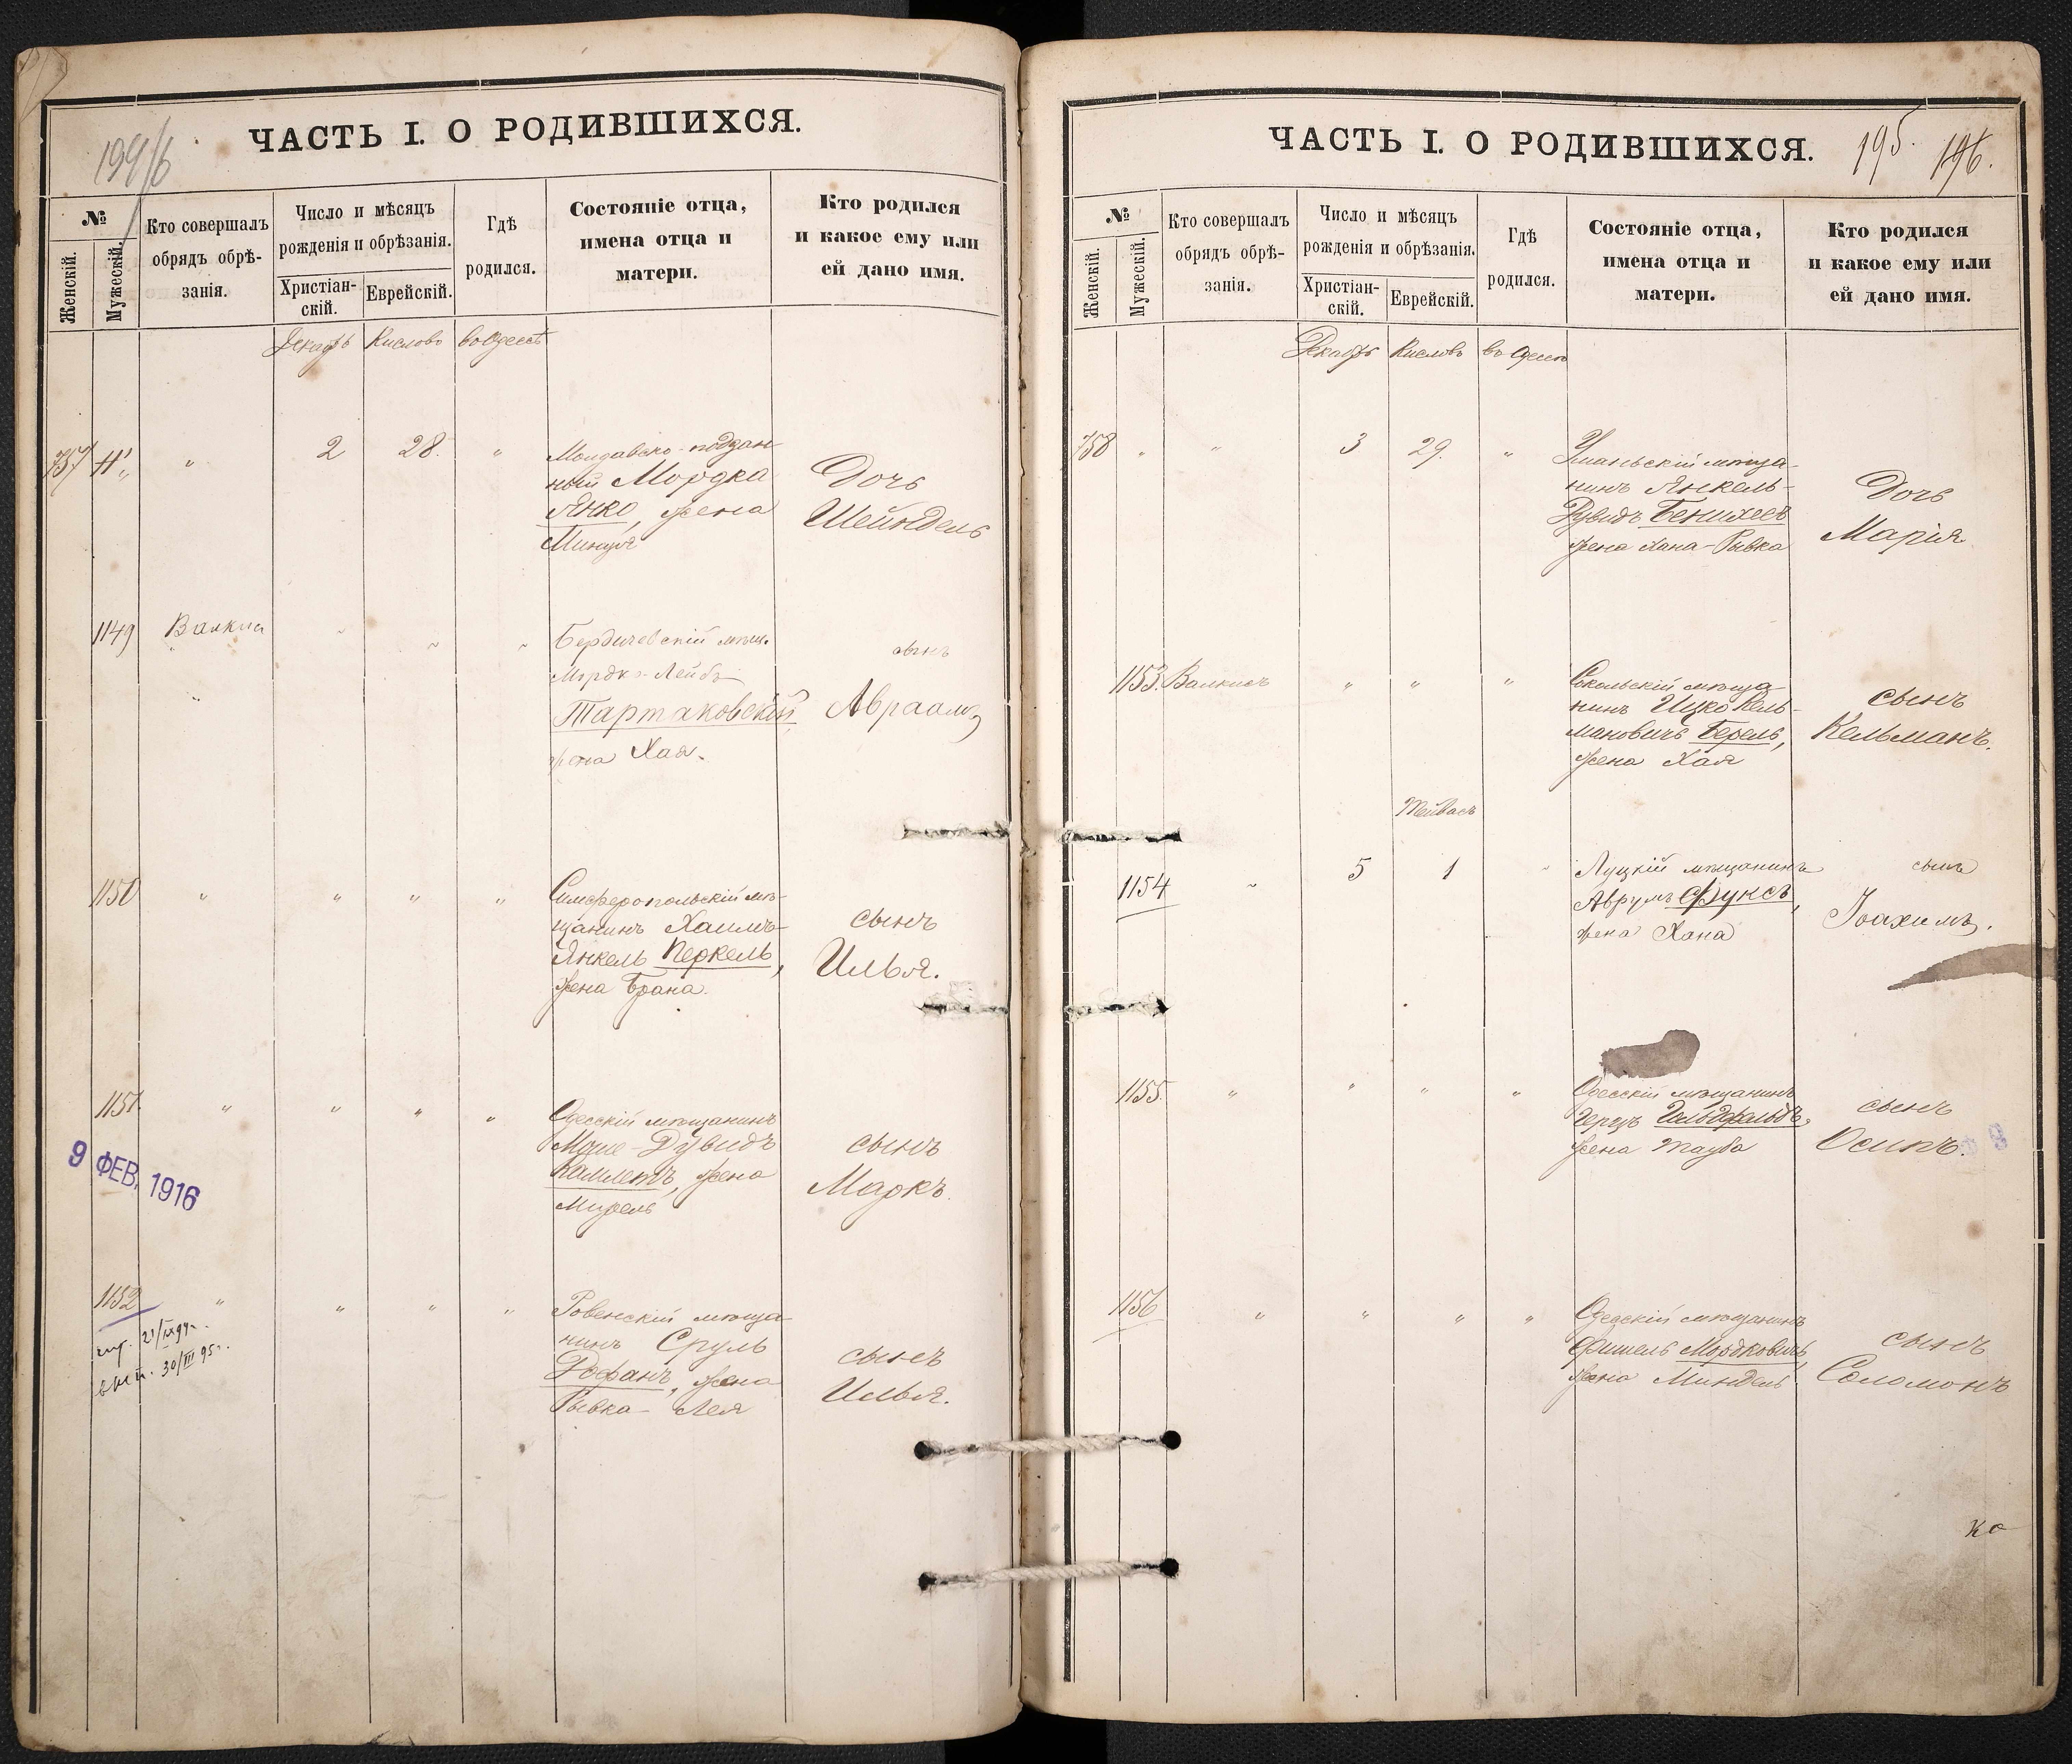 199/6
ЧАСТЬ I. О РОДИВШИХСЯ.
№
Женскій.
Мужескій.
Кто совершалъ
обрядъ обрѣ-
занія.
Число и мѣсяцъ
рожденія и обрѣзанія.
Христіан-
скій.
Еврейскій.
Гдѣ
родился.
Состояніе отца,
имена отца и
матери.
Кто родился
и какое ему или
ей дано имя.
Декабрь Кислово во Одессѣ
757 " 2 28. "
Молдавско-поддан
ный Мордка
Янко, жена
Дочь
Шейндель
1149 " " "
Бердичевскій мѣщ.
Мордко-Лейбъ
Тартаковскій,
жена Хая.
сынъ
Авраамъ
1150 " " " "
Симферопольскій мѣ-
щанинъ Хаимъ-
Янкель Перкель,
жена Брана.
сынъ
Илья.
1151. " " " "
Одесскій мѣщанинъ
Моше-Дувидъ
жена
Мирель
сынъ
Маркъ.
9 ФЕВ. 1916
1152 " " " "
21/IX 94г.
30/III 95г.
Ровенскій мѣща
нинъ Сруль
Рофанъ, жена
Рывка-Лея
сынъ
Илья.
ЧАСТЬ I. О РОДИВШИХСЯ.
195. 196.
№
Женскій.
Мужескій.
Кто совершалъ
обрядъ обрѣ-
занія.
Число и мѣсяцъ
рожденія и обрѣзанія.
Христіан-
скій.
Еврейскій.
Гдѣ
родился.
Состояніе отца,
имена отца и
матери.
Кто родился
и какое ему или
ей дано имя.
Декабрь Кисловъ во Одессѣ
758 " " 3 29. "
Уманьскій мѣща-
нинъ Янкель-
Дувидъ
жена Хана-Рывка
Дочь
Марія
1153. Валкисъ " " "
Сокольскій мѣща
нинъ Ицко Кель-
мановичъ Берель,
жена Хая
сынъ
Кельманъ.
Тейвасъ
1154 " 5 1 "
Луцкій мѣщанинъ
Аврумъ Фуксъ,
жена Хана
сынъ
Іоахимъ.
1155. " " " "
Одесскій мѣщанинъ
Герцъ Гольдфельдъ,
жена Тауба
сынъ
Осипъ.
1156 " " " "
Одесскій мѣщанинъ
Фишель Мордковичъ,
жена Миндель
сынъ
Соломонъ
ко